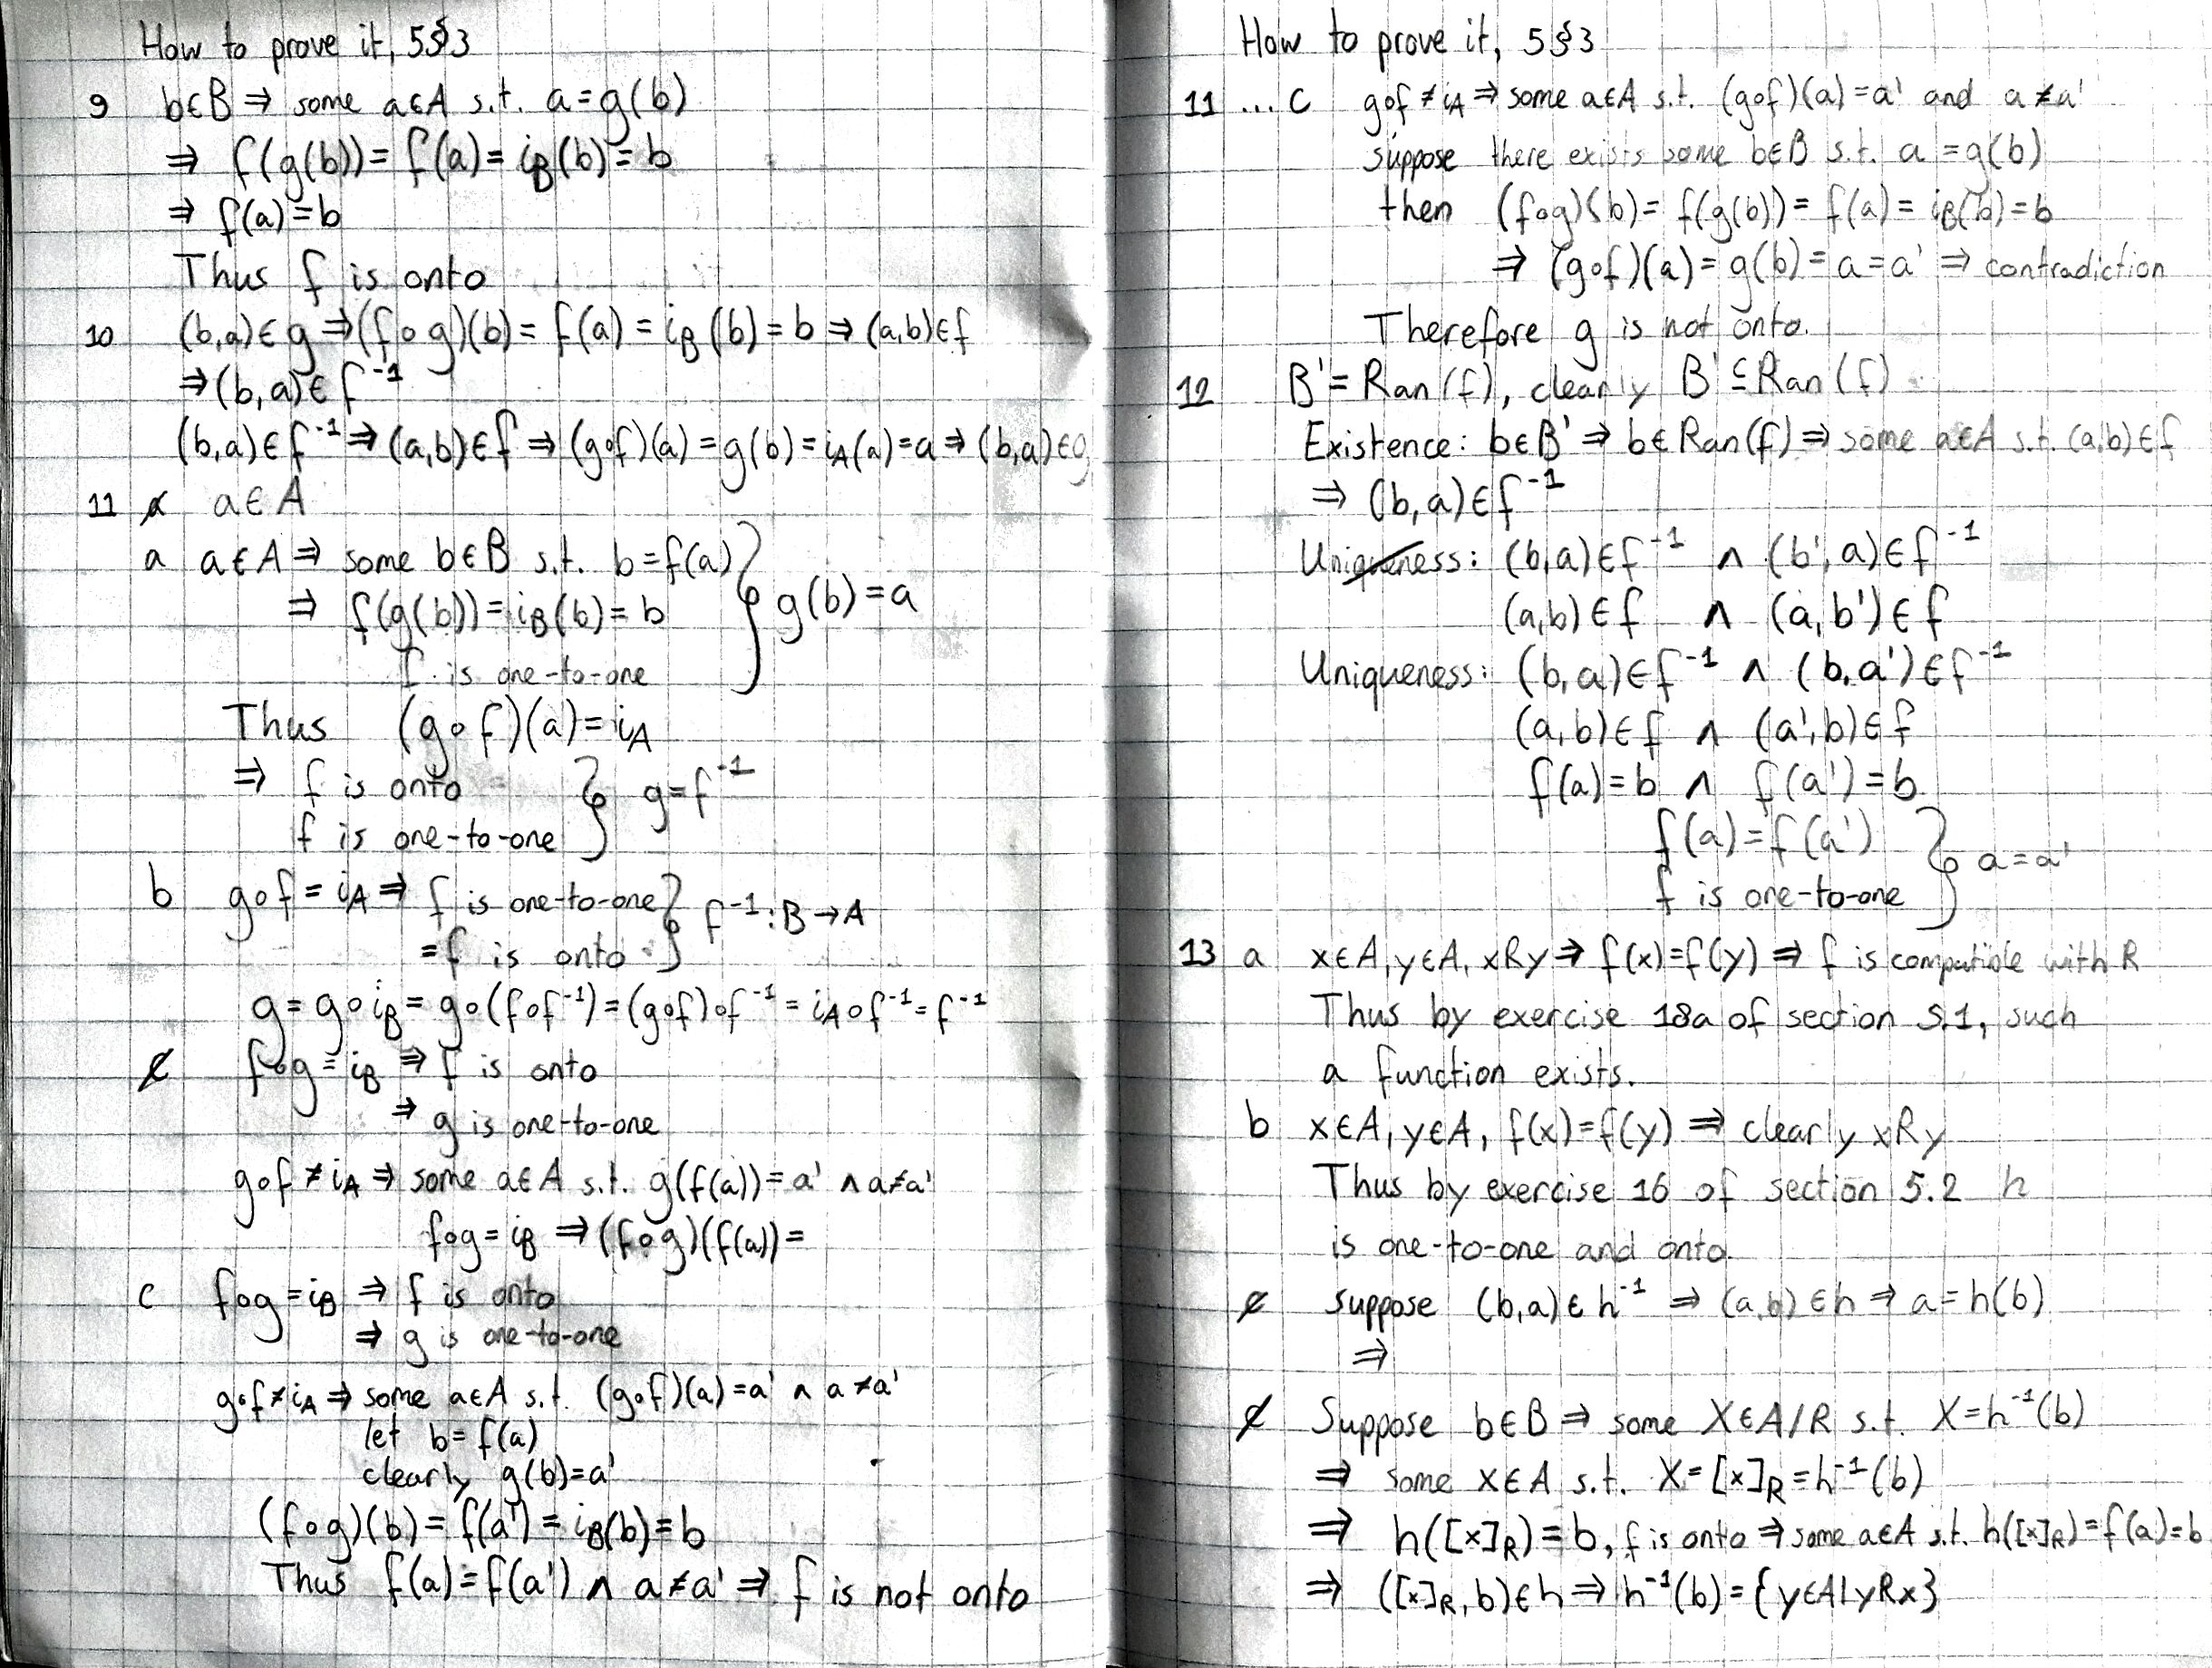 How to prove it, 5§3
9 b∈B ⇒ some a∈A s.t. a=g(b)
⇒ f(g(b)) = f(a) = i_B(b) = b
⇒ f(a)=b
Thus f is onto
10 (b,a)∈g ⇒ (f∘g)(b) = f(a) = i_B(b) = b ⇒ (a,b)∈f
⇒ (b,a)∈f⁻¹
(b,a)∈f⁻¹ ⇒ (a,b)∈f ⇒ (g∘f)(a) = g(b) = i_A(a) = a ⇒ (b,a)∈g
11 a a∈A
a a∈A ⇒ some b∈B s.t. b=f(a)
⇒ f(g(b)) = i_B(b) = b } g(b)=a
f is one-to-one
Thus (g∘f)(a) = i_A
⇒ f is onto } g=f⁻¹
f is one-to-one
b g∘f = i_A ⇒ f is one-to-one } f⁻¹: B→A
= f is onto
g = g∘i_B = g∘(f∘f⁻¹) = (g∘f)∘f⁻¹ = i_A∘f⁻¹ = f⁻¹
c f∘g = i_B ⇒ f is onto
⇒ g is one-to-one
g∘f ≠ i_A ⇒ some a∈A s.t. g(f(a)) = a' ∧ a≠a'
f∘g = i_B ⇒ (f∘g)(f(a)) =
c f∘g = i_B ⇒ f is onto
⇒ g is one-to-one
g∘f ≠ i_A ⇒ some a∈A s.t. (g∘f)(a) = a' ∧ a≠a'
let b = f(a)
clearly g(b)=a'
(f∘g)(b) = f(a') = i_B(b) = b
Thus f(a) = f(a') ∧ a≠a' ⇒ f is not onto
How to prove it, 5§3
11 ... c g∘f ≠ i_A ⇒ some a∈A s.t. (g∘f)(a) = a' and a≠a'
suppose there exists some b∈B s.t. a = g(b)
then (f∘g)(b) = f(g(b)) = f(a) = i_B(b) = b
⇒ (g∘f)(a) = g(b) = a = a' ⇒ contradiction
Therefore g is not onto.
12 B' = Ran(f), clearly B' ⊆ Ran(f)
Existence: b∈B' ⇒ b∈Ran(f) ⇒ some a∈A s.t. (a,b)∈f
⇒ (b,a)∈f⁻¹
Uniqueness: (b,a)∈f⁻¹ ∧ (b',a)∈f⁻¹
(a,b)∈f ∧ (a,b')∈f
Uniqueness: (b,a)∈f⁻¹ ∧ (b,a')∈f⁻¹
(a,b)∈f ∧ (a',b)∈f
f(a)=b ∧ f(a')=b
f(a)=f(a') } a=a'
f is one-to-one
13 a x∈A, y∈A, xRy ⇒ f(x)=f(y) ⇒ f is compatible with R
Thus by exercise 18a of section 5.1, such
a function exists.
b x∈A, y∈A, f(x)=f(y) ⇒ clearly xRy
Thus by exercise 16 of section 5.2 h
is one-to-one and onto.
c suppose (b,a)∈h⁻¹ ⇒ (a,b)∈h ⇒ a=h(b)
⇒
c Suppose b∈B ⇒ some X∈A/R s.t. X=h⁻¹(b)
⇒ some x∈A s.t. X=[x]_R=h⁻¹(b)
⇒ h([x]_R)=b, f is onto ⇒ some a∈A s.t. h([x]_R)=f(a)=b
⇒ ([x]_R, b)∈h ⇒ h⁻¹(b)={y∈A|yRx}